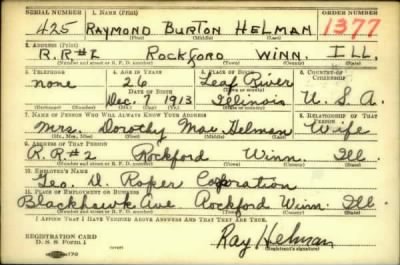 SERIAL NUMBER 1. NAME (Print) ORDER NUMBER
425 RAYMOND BURTON HELMAN 1377
(First) (Middle) (Last)
2. ADDRESS (Print)
R.R#2 ROCKFORD WINN. ILL.
(Number and street or R. F. D. number) (Town) (County) (State)
3. TELEPHONE 4. AGE IN YEARS 5. PLACE OF BIRTH 6. COUNTRY OF CITIZENSHIP
none 26 Leaf River
DATE OF BIRTH (Town or county)
Dec. 7 1913 Illinois U.S.A.
(Exchange) (Number) (Mo.) (Day) (Yr.) (State or country)
7. NAME OF PERSON WHO WILL ALWAYS KNOW YOUR ADDRESS 8. RELATIONSHIP OF THAT PERSON
Mrs. Dorothy Mae Helman Wife
(Mr., Mrs., Miss) (First) (Middle) (Last)
9. ADDRESS OF THAT PERSON
R.R#2 Rockford Winn. Ill.
(Number and street or R. F. D. number) (Town) (County) (State)
10. EMPLOYER'S NAME
Geo. D. Roper Corporation
11. PLACE OF EMPLOYMENT OR BUSINESS
Blackhawk Ave Rockford Winn. Ill.
(Number and street or R. F. D. number) (Town) (County) (State)
I AFFIRM THAT I HAVE VERIFIED ABOVE ANSWERS AND THAT THEY ARE TRUE.
REGISTRATION CARD
D. S. S. Form 1 Ray Helman
(Registrant's signature)